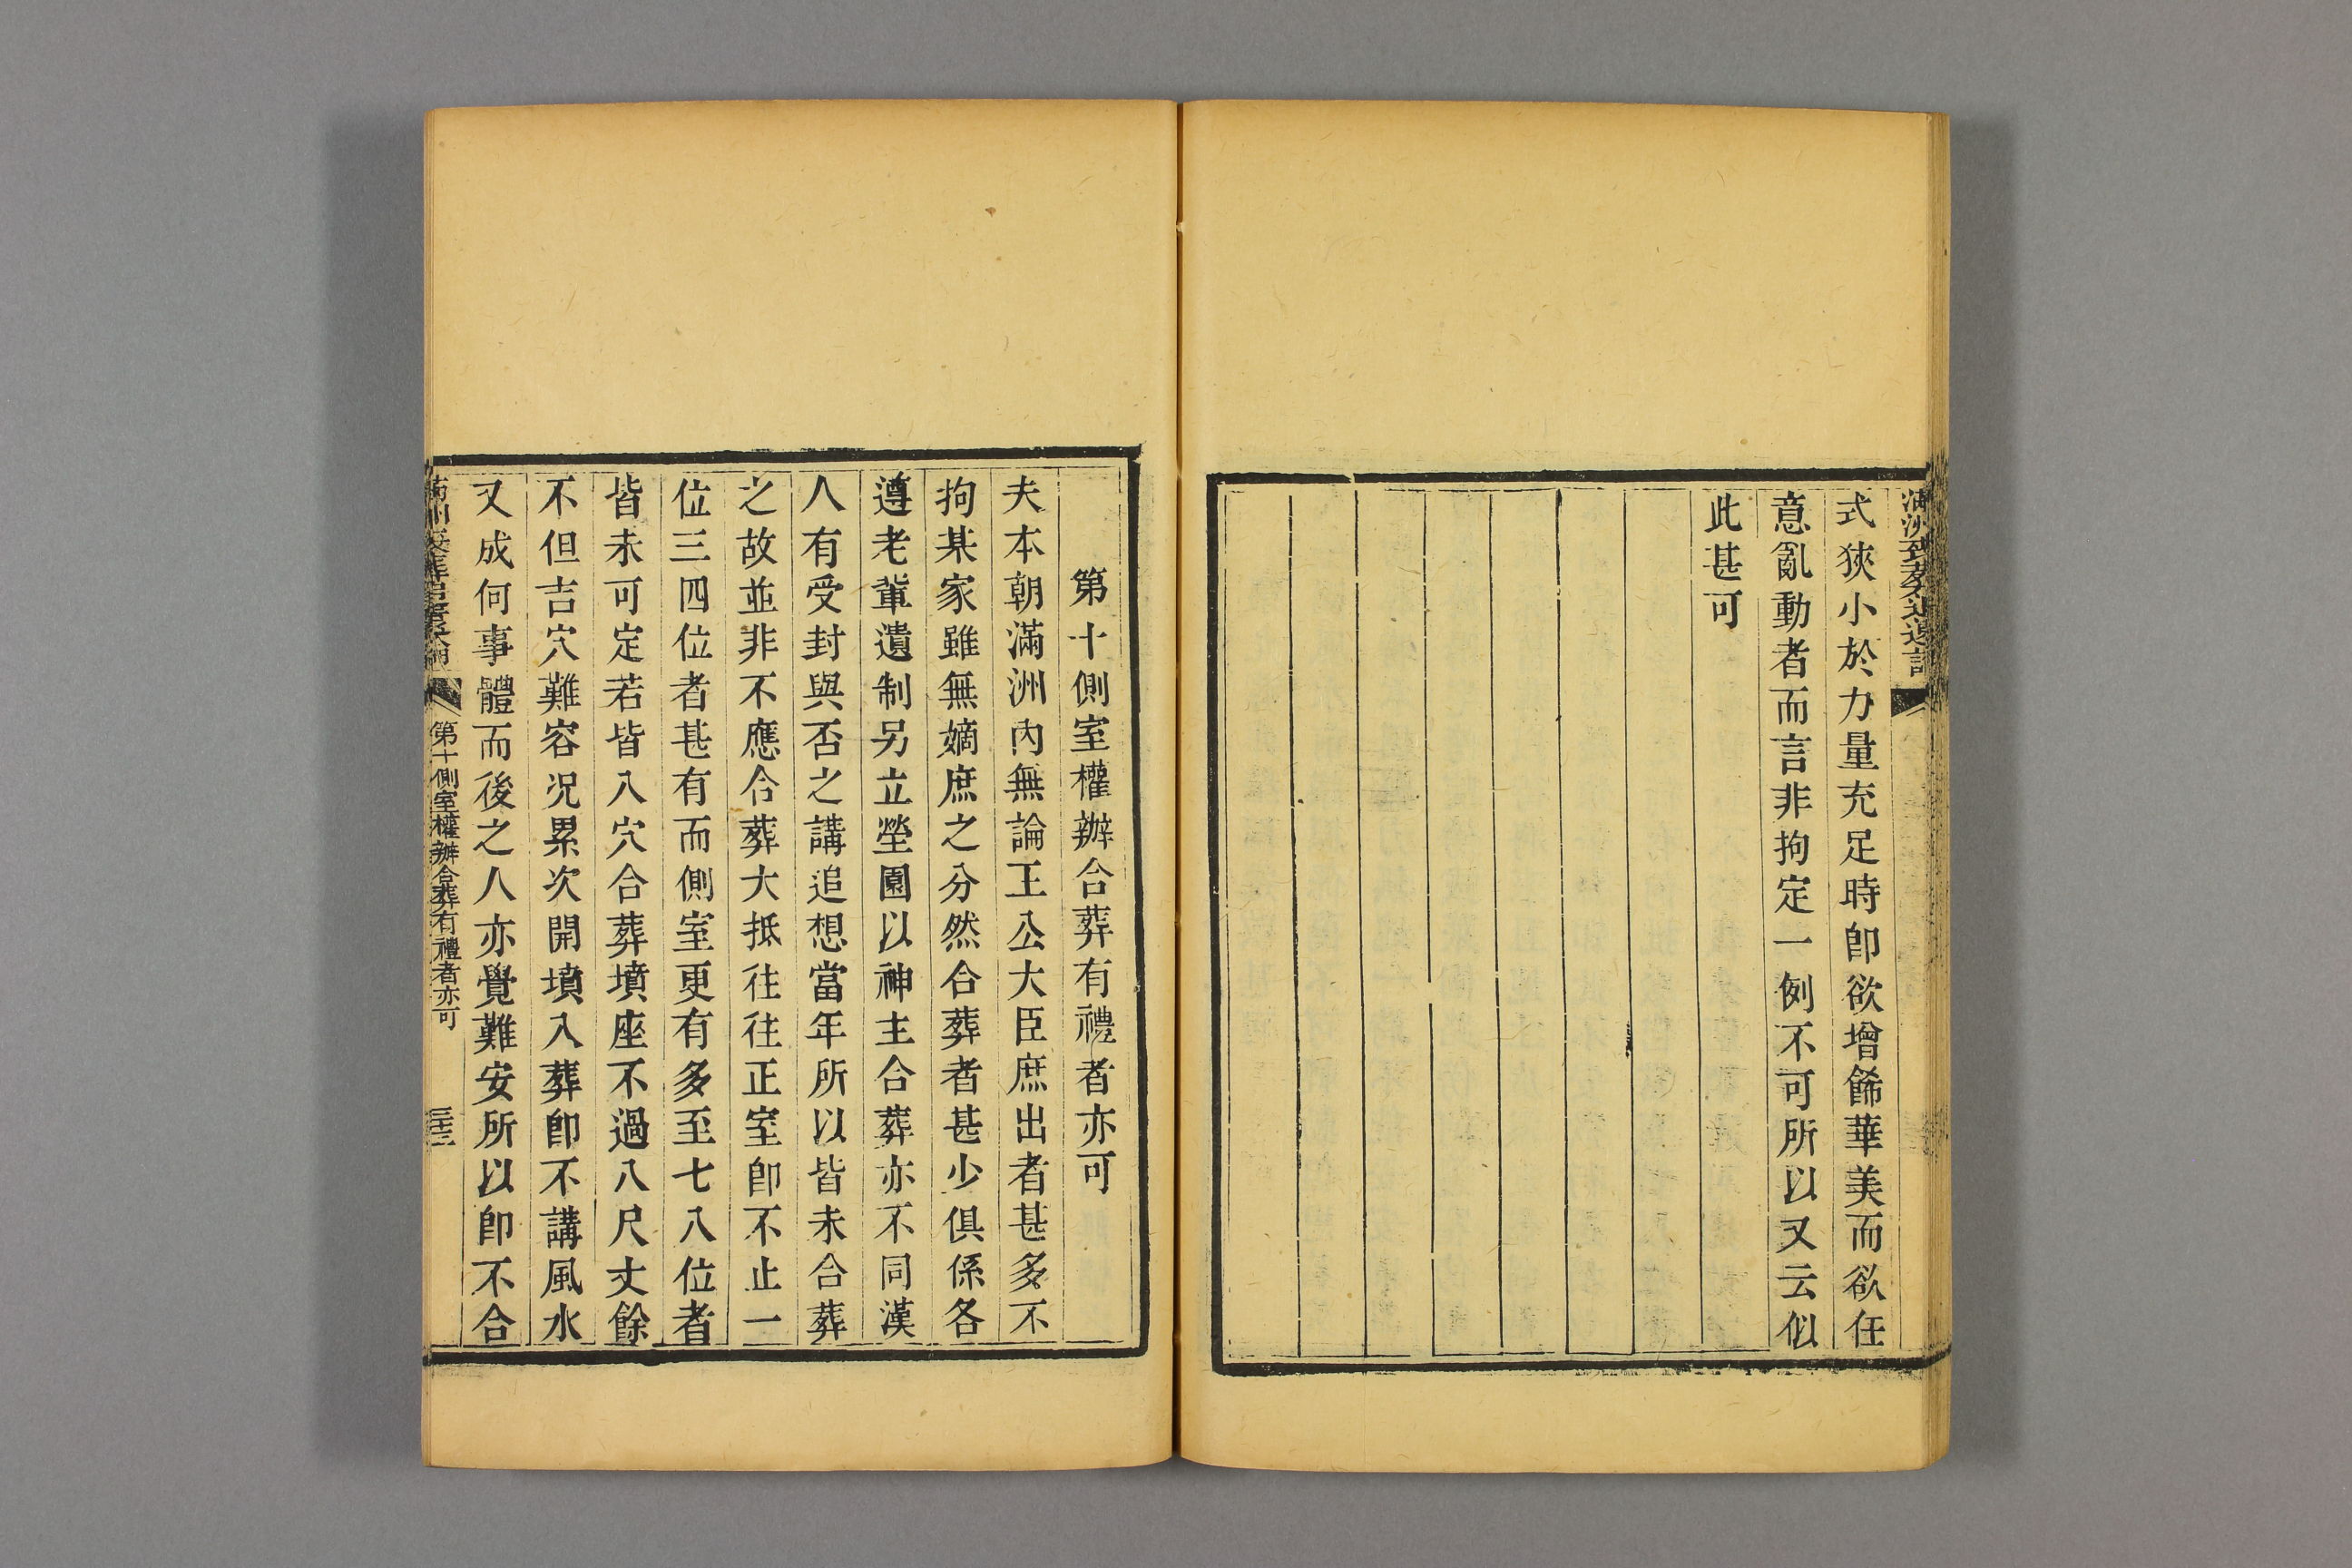 式狹小於力量充足時卽欲增餙華美而欲任
意亂動者而言非拘定一例不可所以又云似
此甚可
第十側室權辦合葬有禮者亦可
夫本朝滿洲內無論王公大臣庶出者甚多不
拘某家雖無嫡庶之分然合葬者甚少俱係各
遵老輩遺制另立塋園以神主合葬亦不同漢
人有受封與否之講追想當年所以皆未合葬
之故並非不應合葬大抵往往正室卽不止一
位三四位者甚有而側室更有多至七八位者
皆未可定若皆入穴合葬墳座不過八尺丈餘
不但吉穴難容况累次開墳入葬卽不講風水
又成何事體而後之人亦覺難安所以卽不合
第十側室權辦合葬有禮者亦可